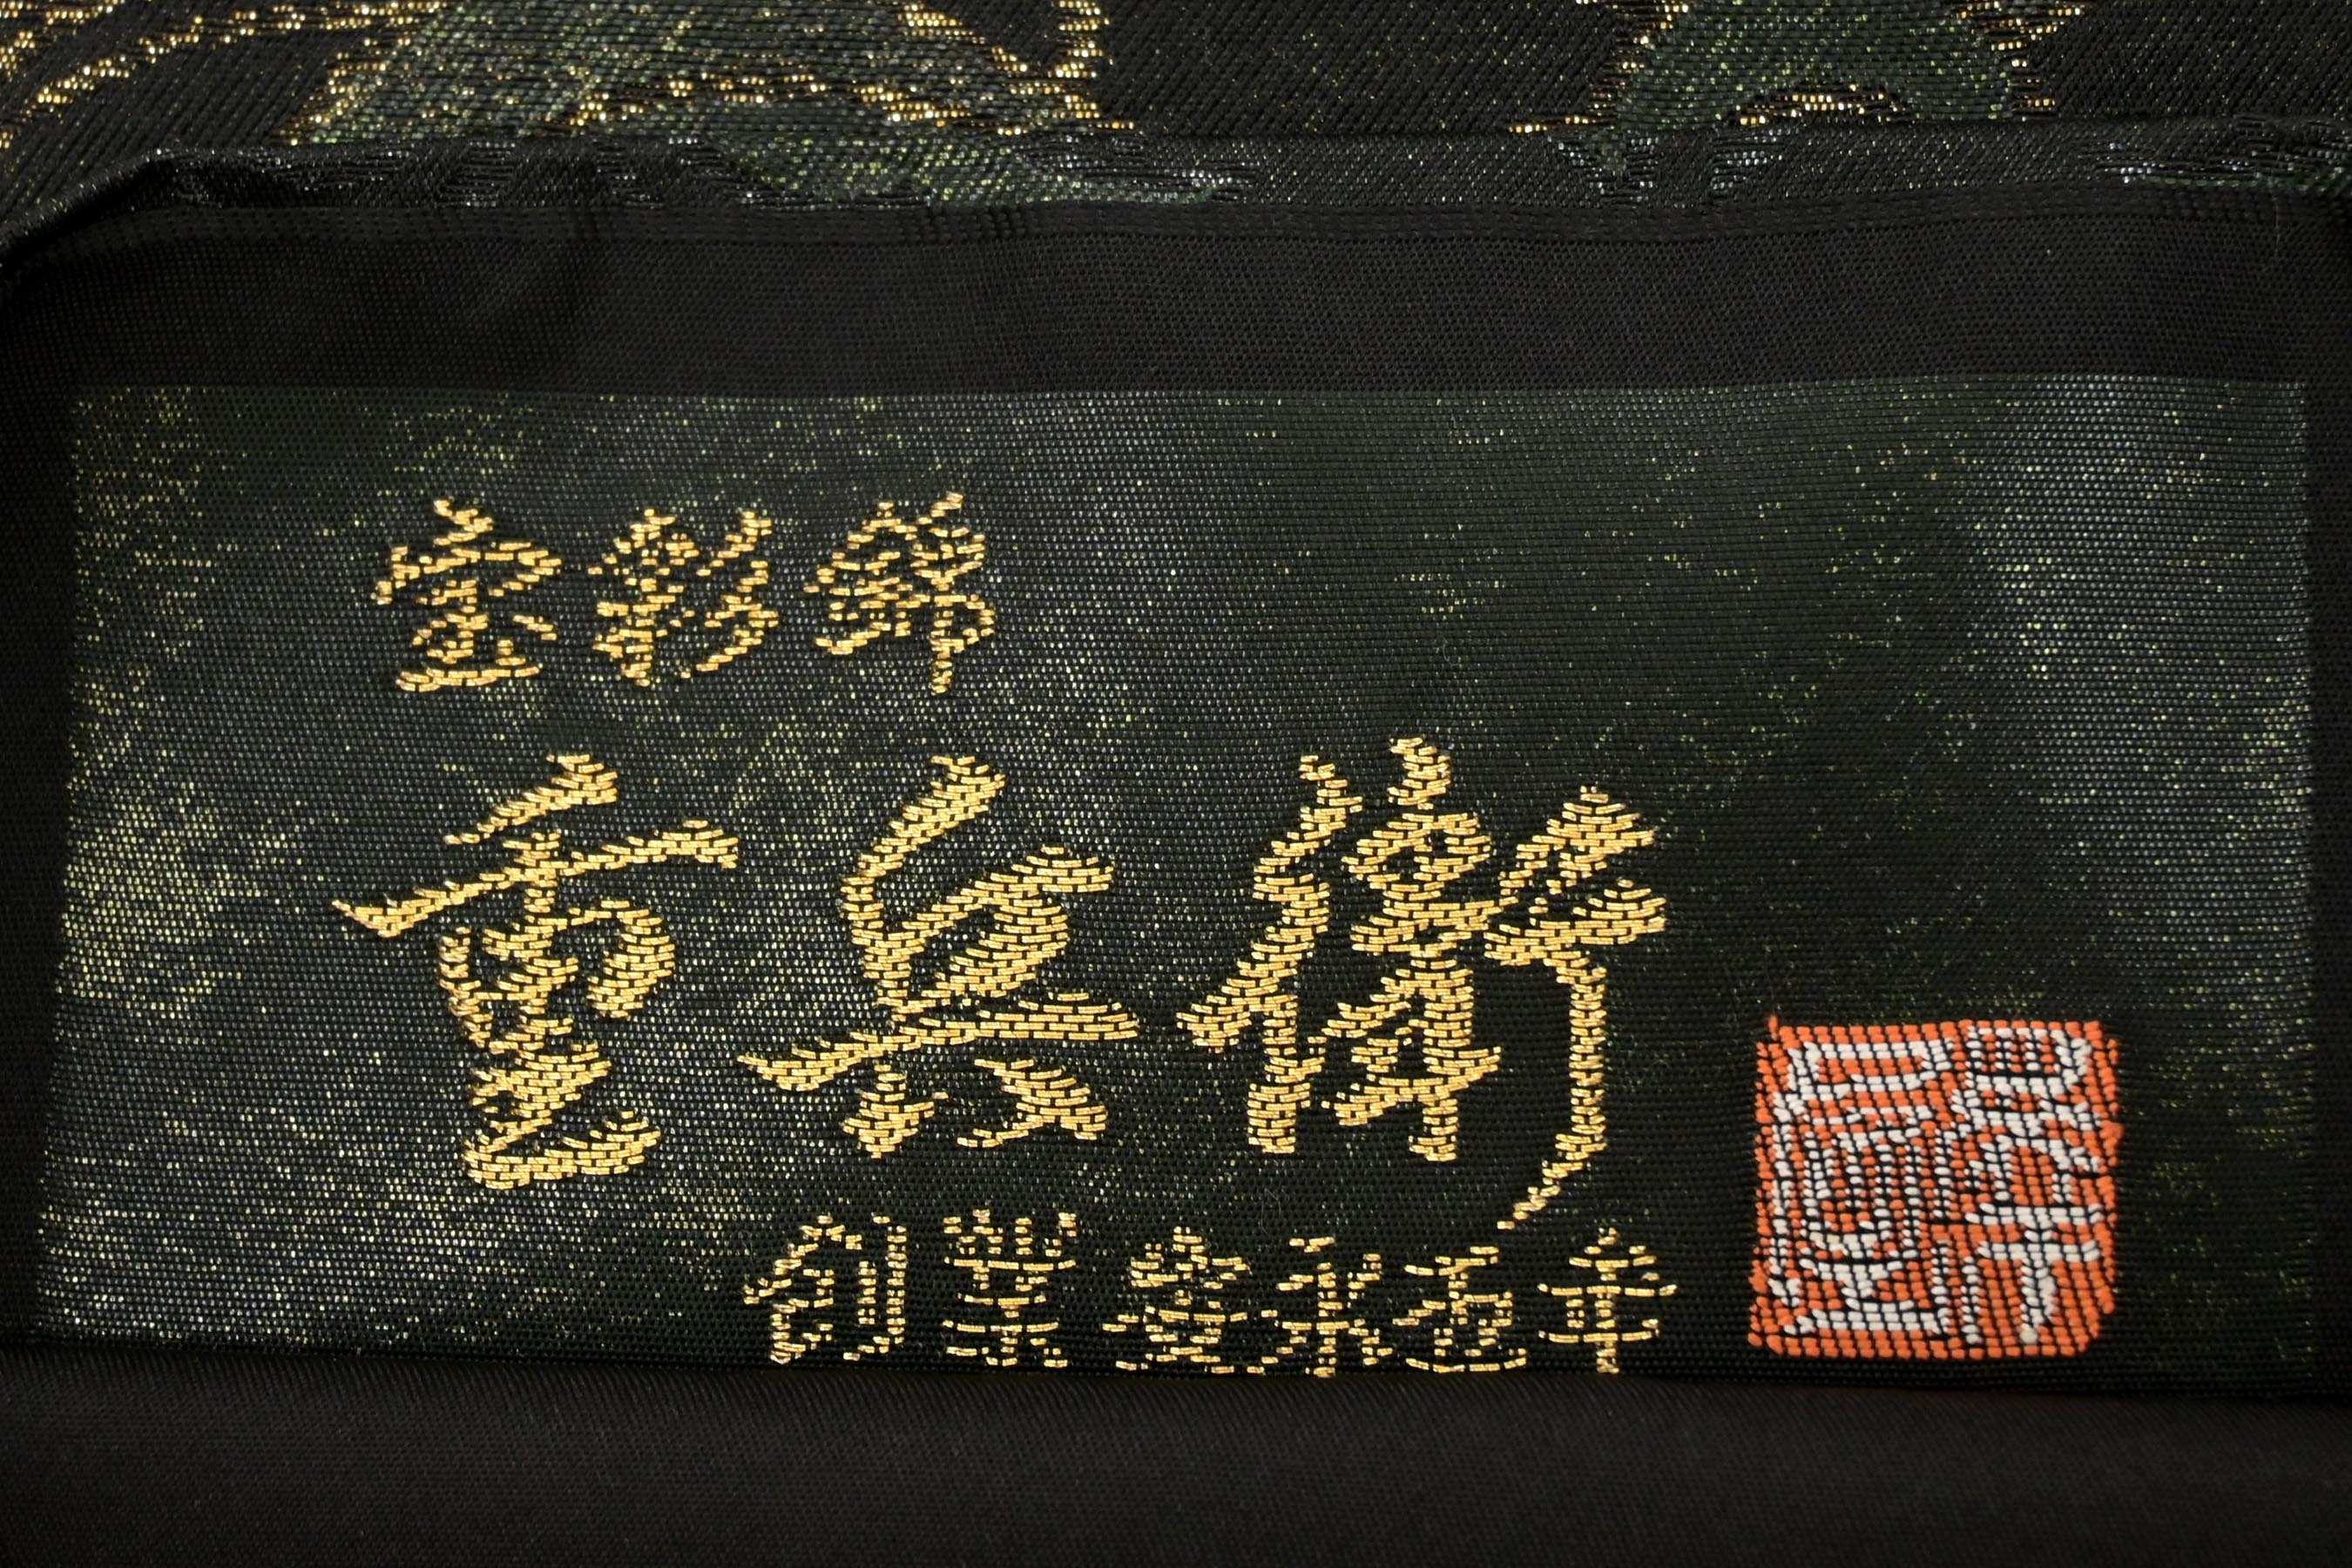 金彩錦
重兵衛
創業 寶永五年